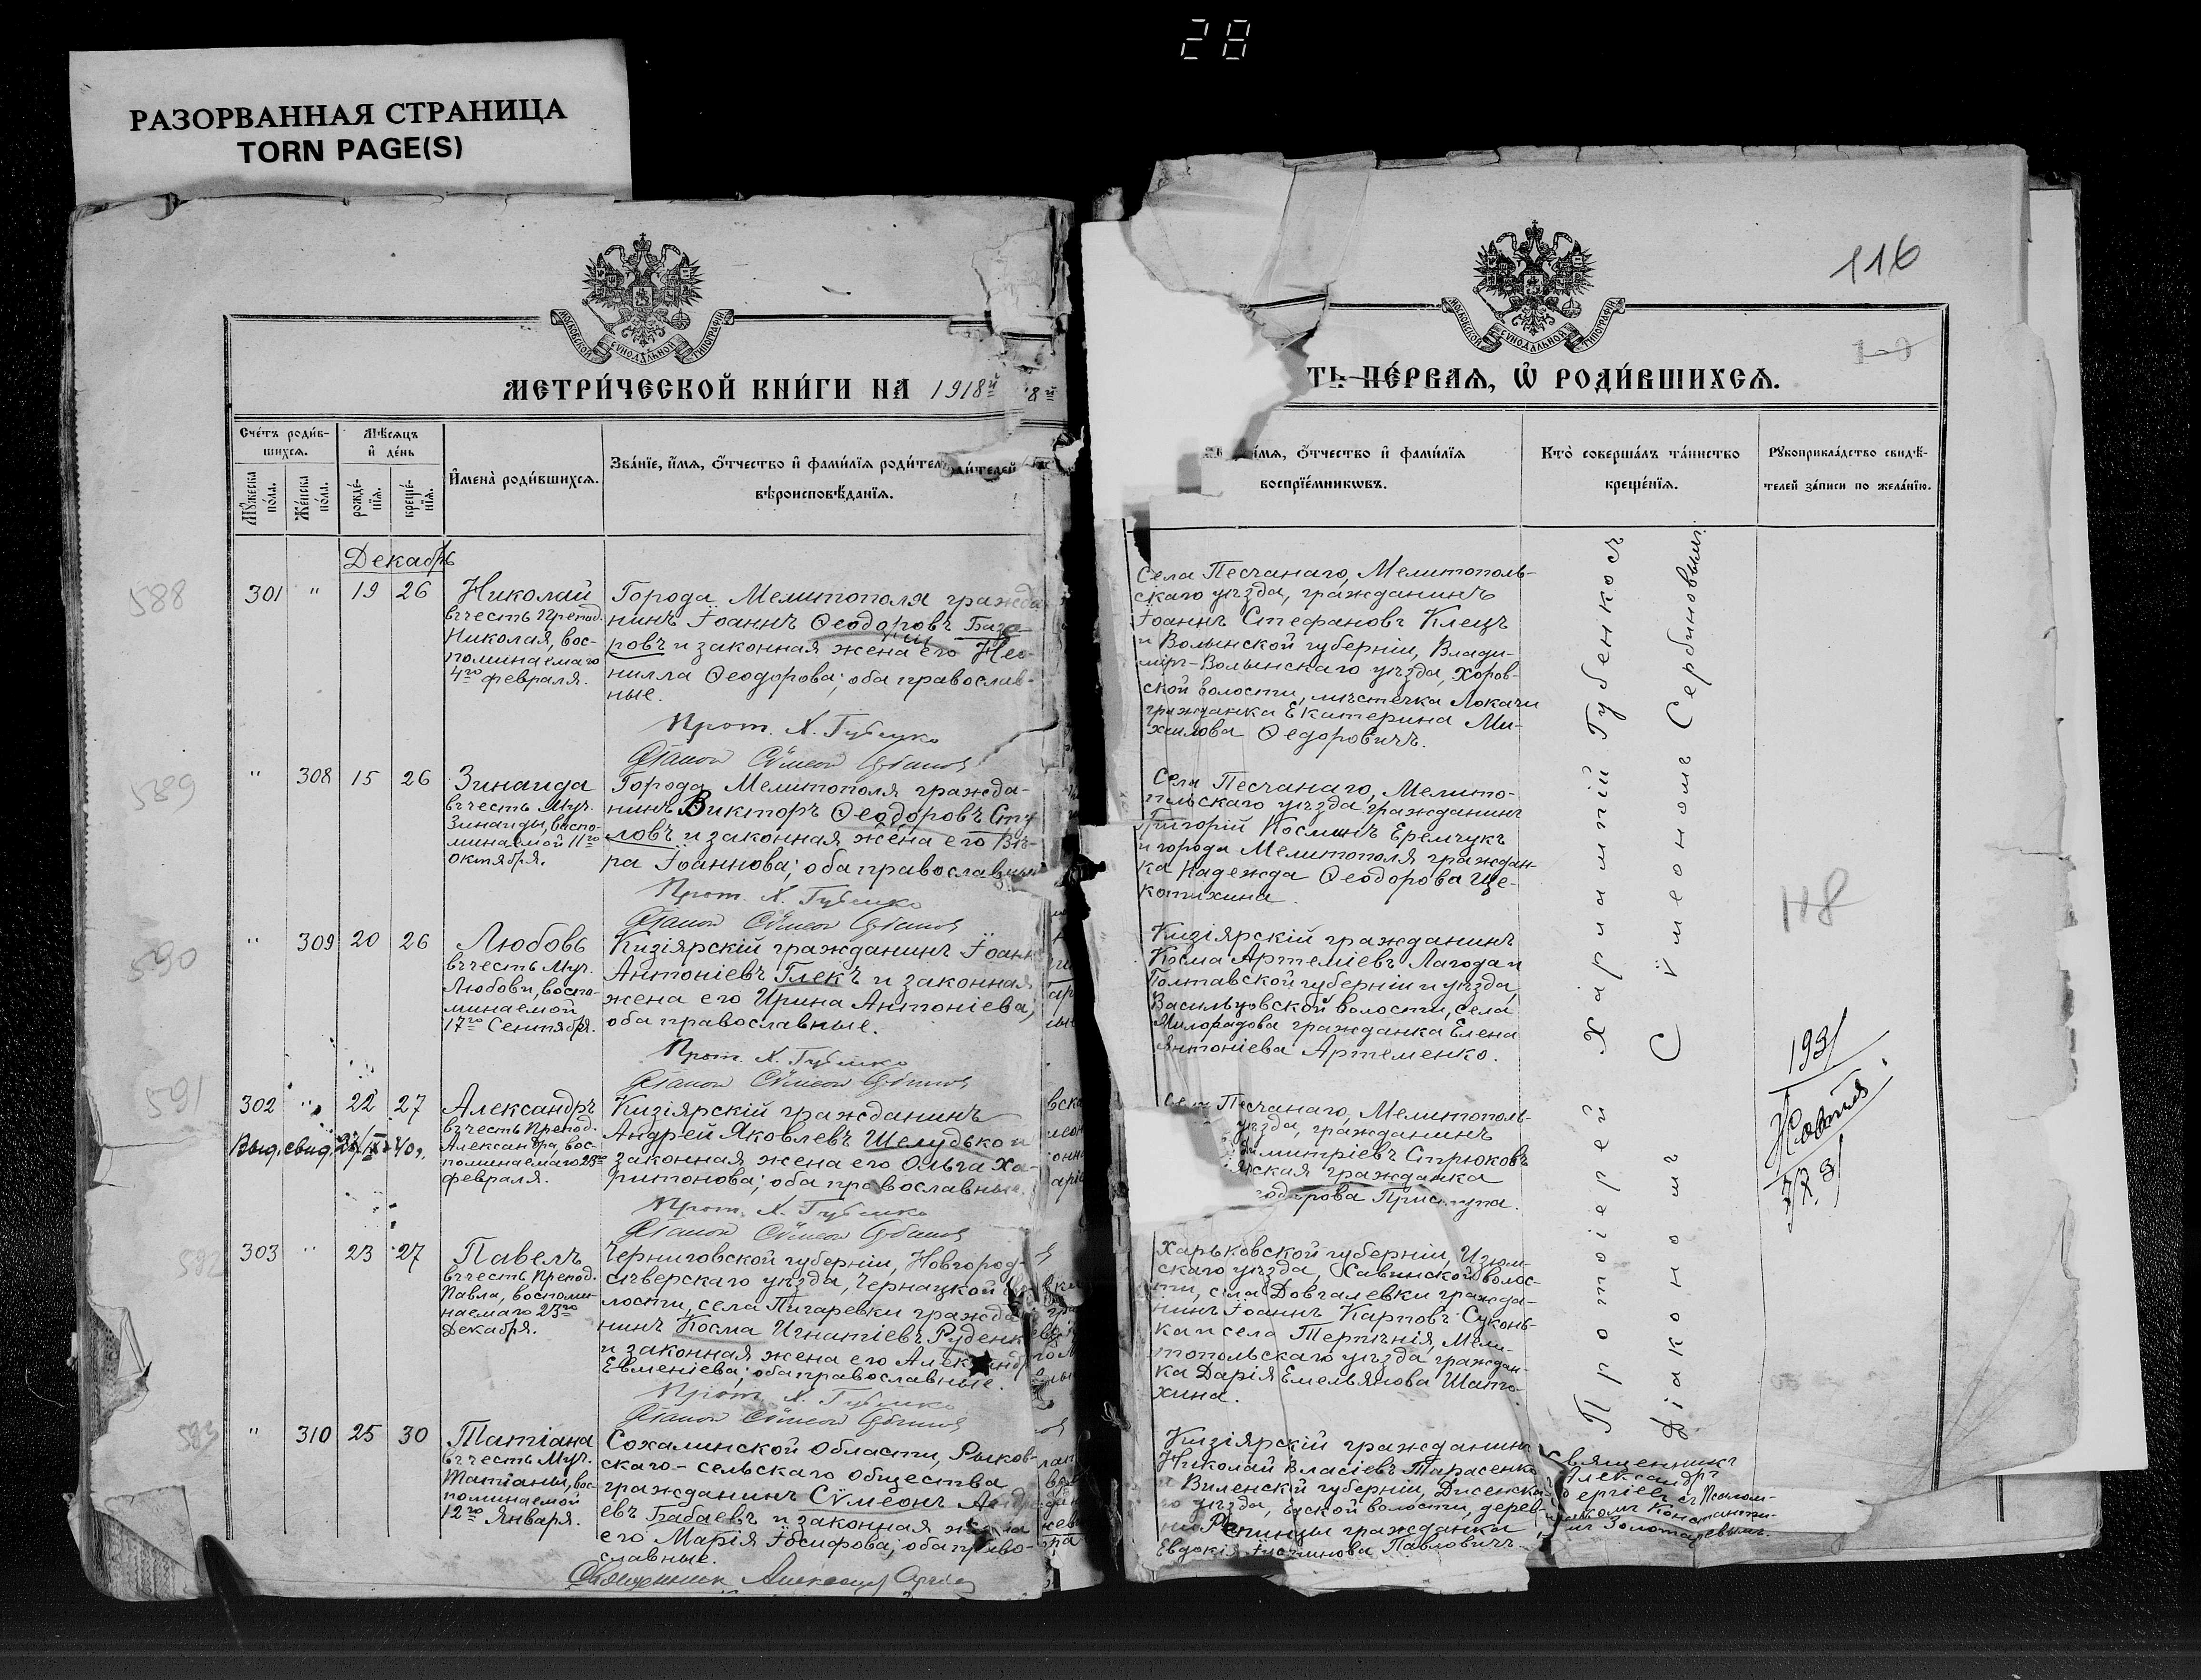 28
РАЗОРВАННАЯ СТРАНИЦА
TORN PAGE(S)
МОСКОВСКОЙ СѴНОДАЛЬНОЙ ТИПОГРАФІИ
МЕТРИ́ЧЕСКОЙ КНИ́ГИ НА 1918й
Сче́тъ роди́в-
шихсѧ.
Мѣ́сѧцъ
и҆ де́нь
Мꙋ́жеска
по́ла.
Же́нска
по́ла.
рожде́-
нїѧ.
креще́-
нїѧ.
И҆мена̀ роди́вшихсѧ.
Зва́нїе, и҆́мѧ, ѻ҆́тчество и҆ фами́лїѧ роди́тел
вѣроисповѣ́данїѧ.
Декабрь
588
301 " 19 26
Николай
въ честь Препод.
Николая, вос-
поминаемаго
4го февраля.
Города Мелитополя гражда
нинъ Іоаннъ Ѳеодоровъ
ровъ и законная жена его Нео-
нилла Ѳеодорова; оба православ-
ные.
Прот. Х. Губенко
589
" 308 15 26
Зинаида
въ честь Муч.
Зинаиды, воспо-
минаемой 11го
Октября.
Города Мелитополя гражда-
нинъ Викторъ Ѳеодоровъ
ловъ и законная жена его Вѣ-
ра Іоаннова; оба православные
Прот. Х. Губенко
590
" 309 20 26
Любовь
въ честь Муч.
Любови, воспо-
минаемой
17го Сентября.
Кизіярскій гражданинъ Іоанн
Антоніевъ Глекъ и законная
жена его Ирина Антоніева,
оба православные.
Прот. Х. Губенко
591
302 " 22 27
Выд. свид.
Александръ
въ честь Препод.
Александра, вос-
поминаемаго 23го
февраля.
Кизіярскій гражданинъ
Андрей Яковлевъ Шелудько и
законная жена его Ольга Ха-
ритонова; оба православные.
Прот. Х. Губенко
592
303 " 23 27
Павелъ
въ честь Препод.
Павла, воспоми-
наемаго 23го
Декабря.
Черниговской губерніи, Новгород-
сѣверскаго уѣзда, Чернацкой во
лости, села Пигаревки гражда
нинъ Косма Игнатіевъ Руденк
и законная жена его Александр
Евменіева; оба православные.
Прот. Х. Губенко
593
" 310 25 30
Татіана
въ честь Муч.
Татіаны, вос-
поминаемой
12го Января.
Сохалинской Области, Рыков-
скаго-сельскаго общества
гражданинъ Сѵмеонъ Анд
евъ Бабаевъ и законная жена
его Марія Іосифова; оба право-
славные.
Священник Александр
116
МОСКОВСКОЙ СѴНОДАЛЬНОЙ ТИПОГРАФІИ
ТЬ ПЕ́РВАѦ, Ѡ҆ РОДИ́ВШИХСѦ.
и҆́мѧ, ѻ҆́тчество и҆ фами́лїѧ
воспрїе́мникѡвъ.
Кто̀ соверша́лъ та́инство
креще́нїѧ.
Рꙋкоприкла́дство свидѣ́-
телей за́писи по жела́нїю.
Села Песчанаго, Мелитополь-
скаго уѣзда, гражданинъ
Іоаннъ Стефановъ Клецъ
и Волынской губерніи, Влади-
міръ-Волынскаго уѣзда, Хоров-
ской волости, мѣстечка Локачи
гражданка Екатерина Ми-
хаилова Ѳедоровичъ.
Села Песчанаго, Мелито-
польскаго уѣзда гражданинъ
Григорій Косминъ Еремчукъ
и города Мелитополя граждан-
ка Надежда Ѳеодорова Ще-
котихина.
Кизіярскій гражданинъ
Косма Артеміевъ Лагода и
Полтавской губерніи и уѣзда,
Васильцовской волости, села
Милорадова гражданка Елена
Антоніева Артеменко.
Песчанаго, Мелитополь-
уѣзда, гражданинъ
Димитріевъ Стрюковъ
ярская гражданка
одорова Приступа.
Харьковской губерніи, Изюм-
скаго уѣзда, Савинской волос-
ти, села Довгалевки гражда-
нинъ Іоаннъ Карповъ Суконь-
ка и села Терпѣнія, Мели-
топольскаго уѣзда граждан-
ка Дарія Емельянова Шато-
хина.
Кизіярскій гражданинъ
Николай Власіевъ Тарасенко
и Виленской губерніи, Дисенска-
го уѣзда, волости, дерев-
ни Репинцы гражданка
Евдокія Павловичъ.
Протоіерей Харитатій Губенко съ
Діакономъ Сѵмеономъ Сербиновымъ.
Священникъ
Александръ
Сергіевъ съ Псалом-
щикомъ Константи-
мъ Золотаревымъ.
118
1931